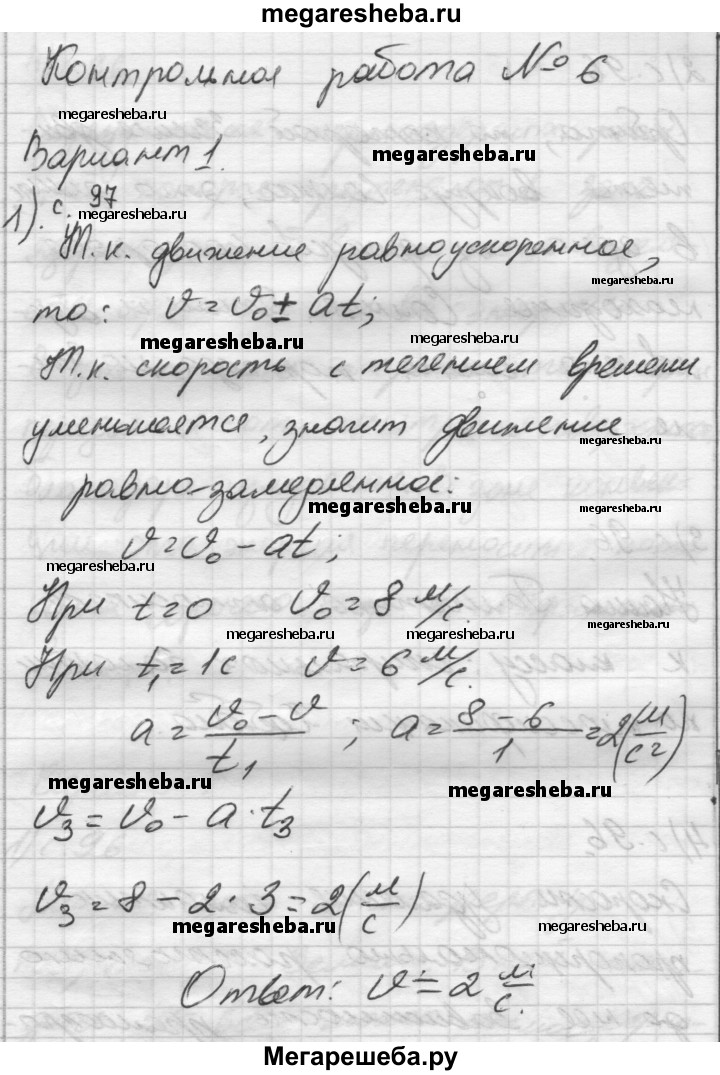 megaresheba.ru
Контрольная работа № 6
megaresheba.ru
Вариант 1.
megaresheba.ru
1). с. 97
megaresheba.ru
Т.к. движение равноускоренное,
megaresheba.ru
то: v = v₀ ± at;
megaresheba.ru
megaresheba.ru
Т.к. скорость с течением времени
уменьшается, значит движение
megaresheba.ru
равно-замедленное:
megaresheba.ru
v = v₀ - at;
megaresheba.ru
При t = 0 v₀ = 8 м/с.
megaresheba.ru
megaresheba.ru
megaresheba.ru
При t₁ = 1с v = 6 м/с.
a = (v₀ - v)/t₁ ; a = (8 - 6)/1 = 2(м/с²)
megaresheba.ru
megaresheba.ru
v₃ = v₀ - a · t₃
v₃ = 8 - 2 · 3 = 2(м/с)
megaresheba.ru
megaresheba.ru
Ответ: v = 2 м/с.
Мегарешеба.ру